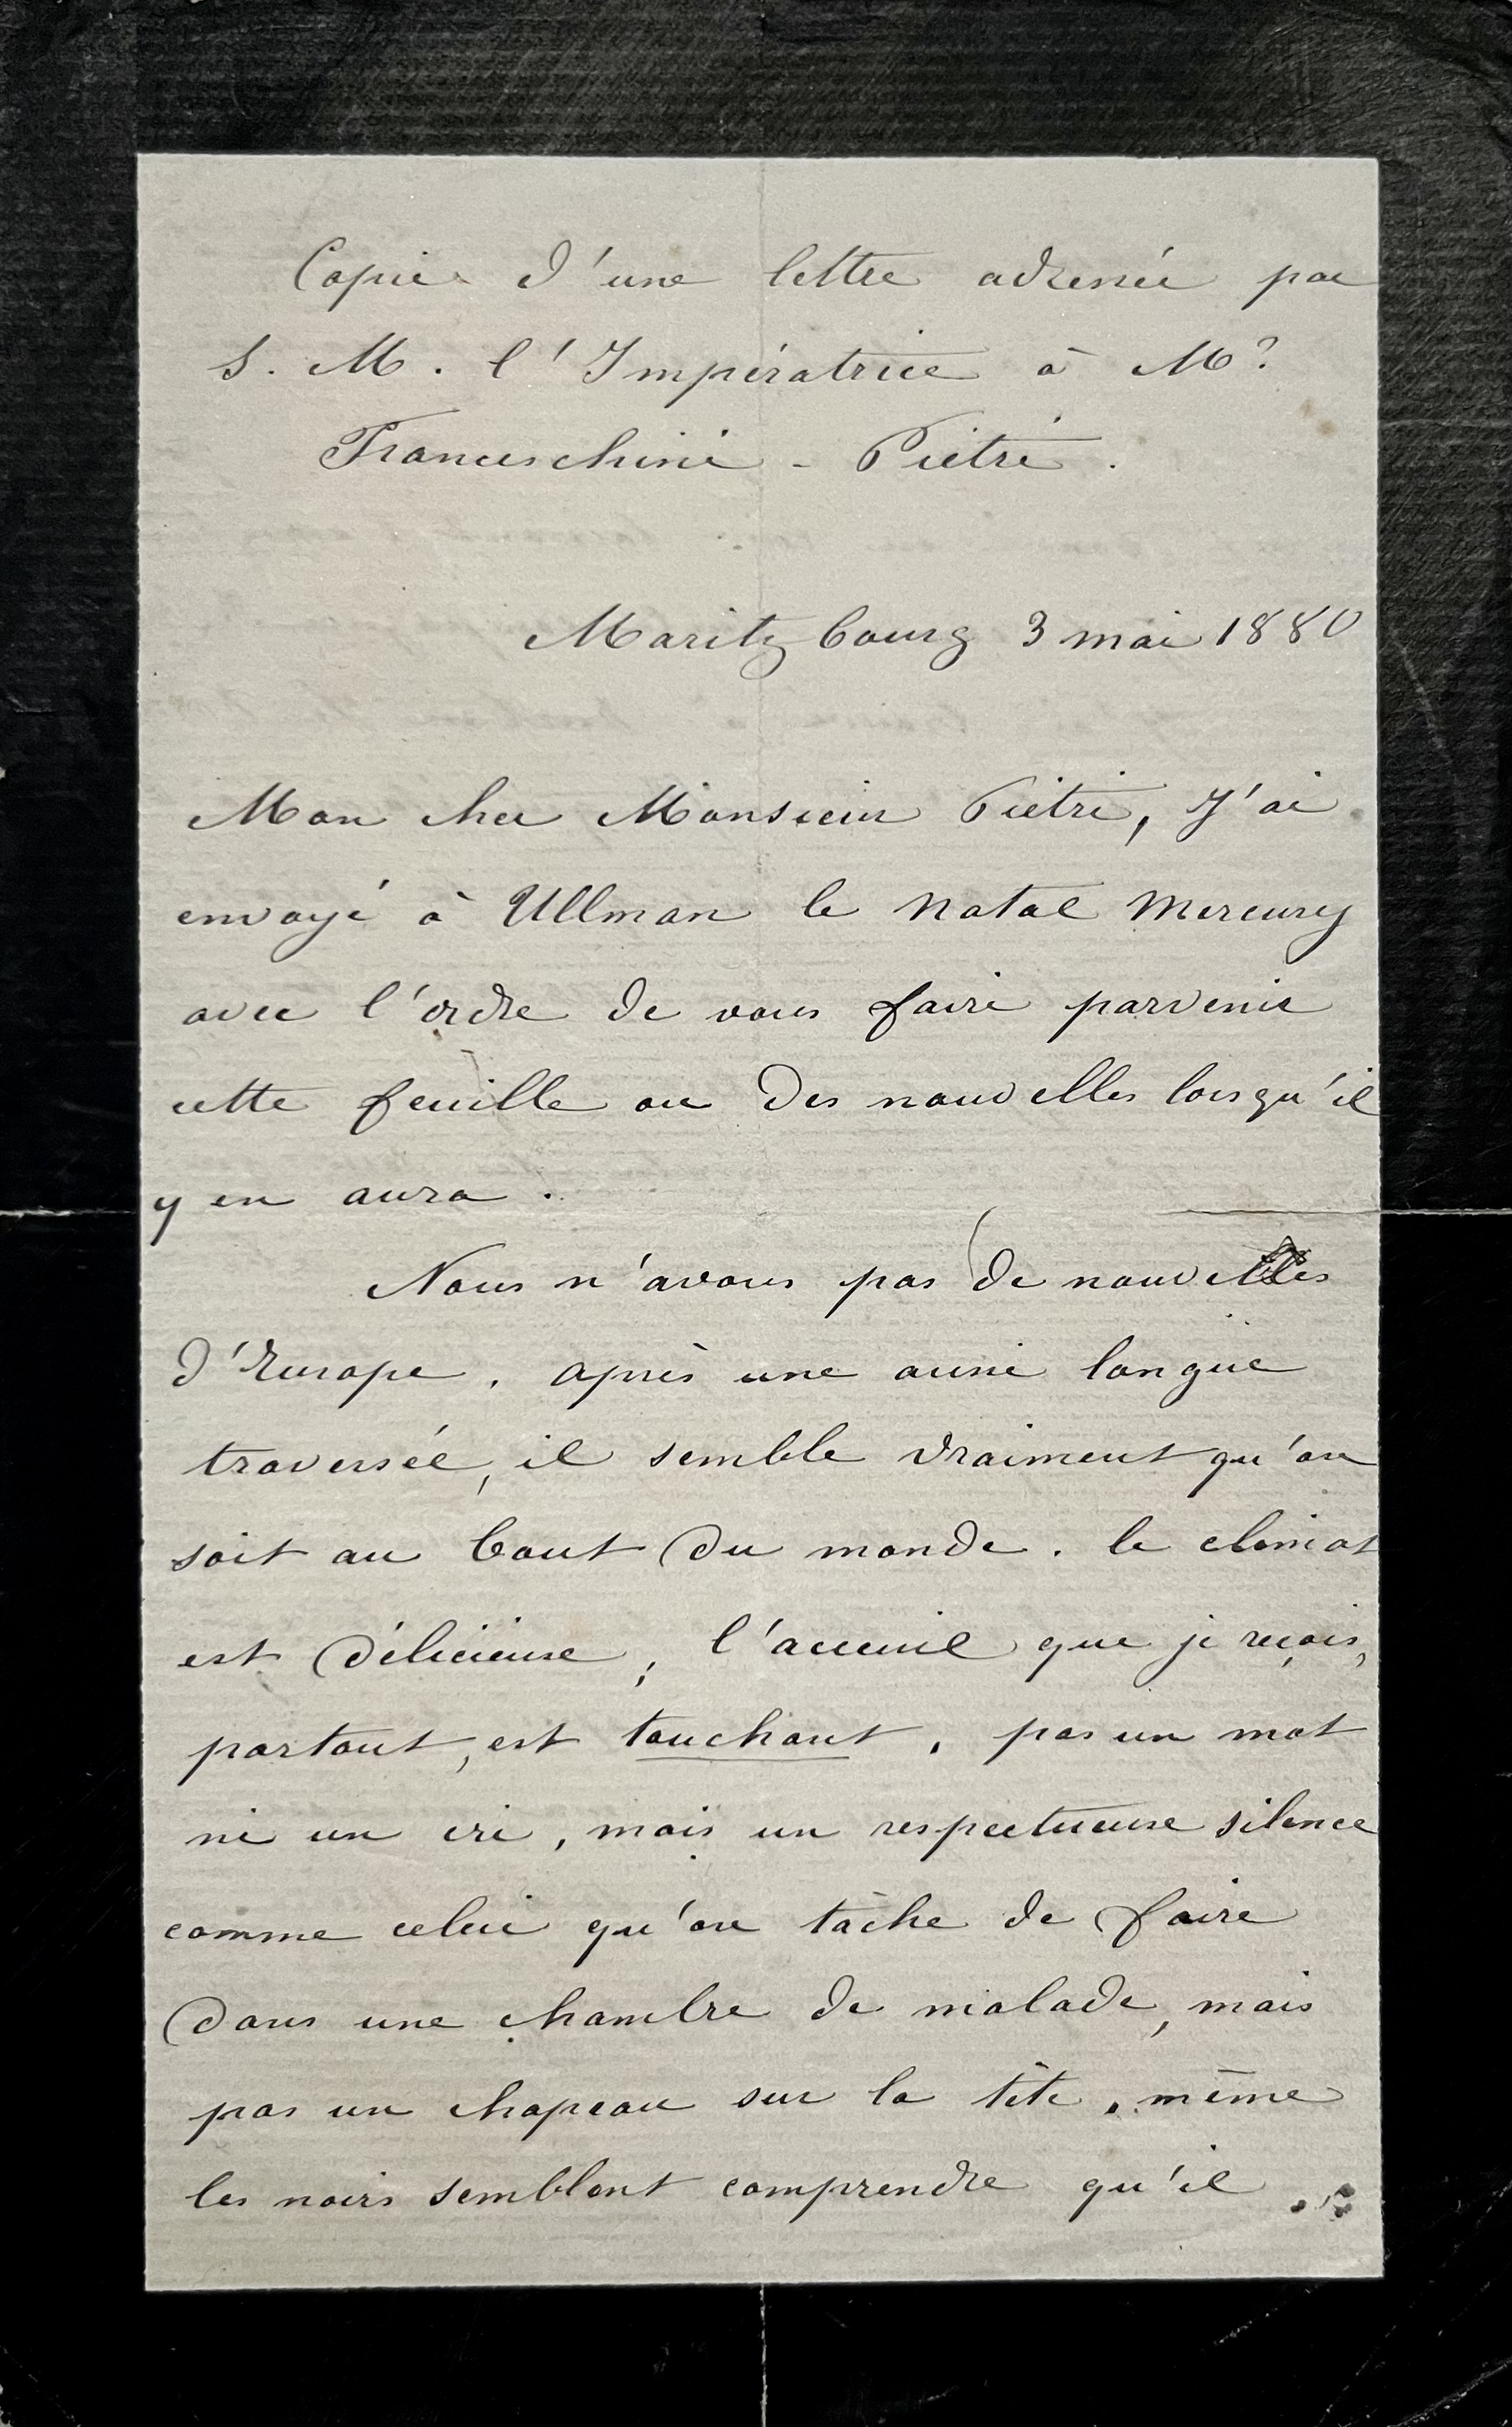 Copie d'une lettre adressée par
S. M. l'Impératrice à Mr
Franceschini - Pietri.
Maritzbourg 3 mai 1880
Mon cher Monsieur Pietri, J'ai
envoyé à Ullman le Natal Mercury
avec l'ordre de vous faire parvenir
cette feuille ou des nouvelles lorsqu'il
y en aura.
Nous n'avons pas de nouvelles
d'Europe. après une aussi longue
traversée, il semble vraiment qu'on
soit au bout du monde. le climat
est délicieuse, l'accueil que je reçois,
partout, est touchant. pas un mot
ni un cri, mais un respectueuse silence
comme celui qu'on tâche de faire
dans une chambre de malade, mais
pas un chapeau sur la tête. même
les noirs semblent comprendre qu'il